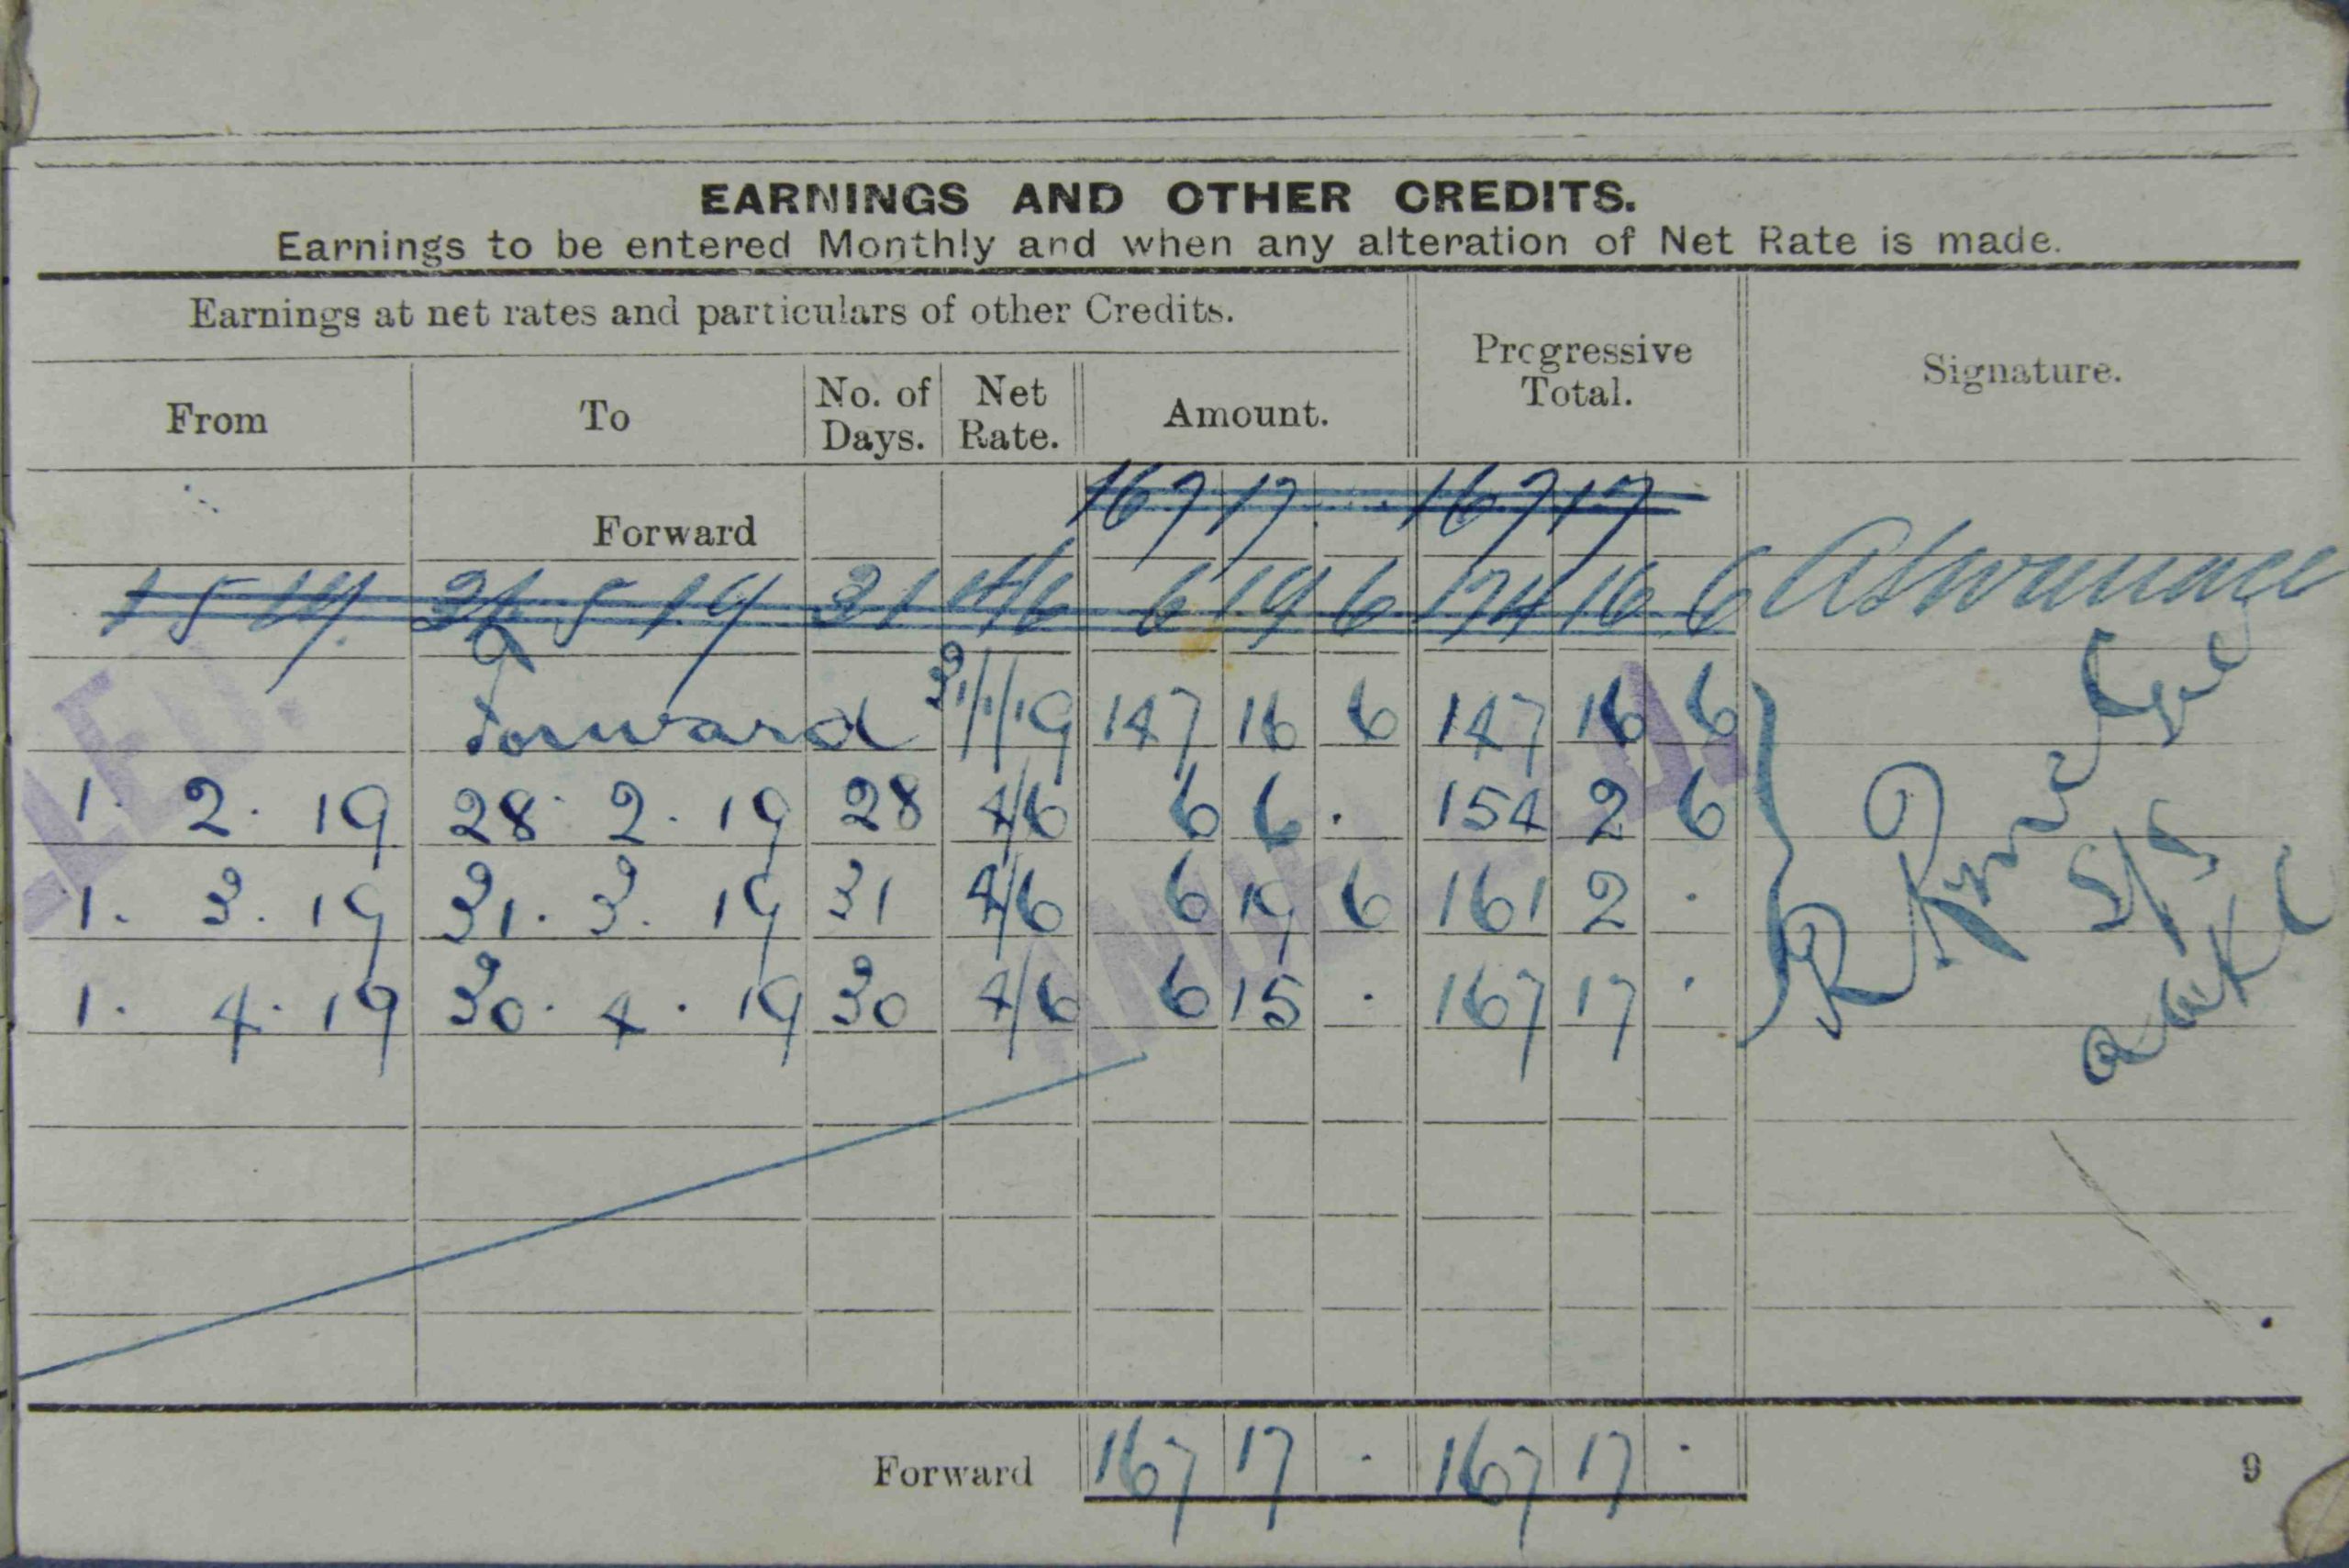 EARNINGS AND OTHER CREDITS.
Earnings to be entered Monthly and when any alteration of Net Rate is made.
Earnings at net rates and particulars of other Credits.
Progressive Total.
Signature.
From To No. of Days. Net Rate. Amount.
167 17 . 167 17
Forward
1 5 19 31 5 19 31 4/6 6 19 6 174 16 6
Forward 31/1/19 147 16 6 147 16 6
1. 2. 19 28. 2. 19 28 4/6 6 6 . 154 2 6
1. 3. 19 31. 3. 19 31 4/6 6 19 6 161 2 .
1. 4. 19 30. 4. 19 30 4/6 6 15 . 167 17 .
Forward 167 17 . 167 17 .
9